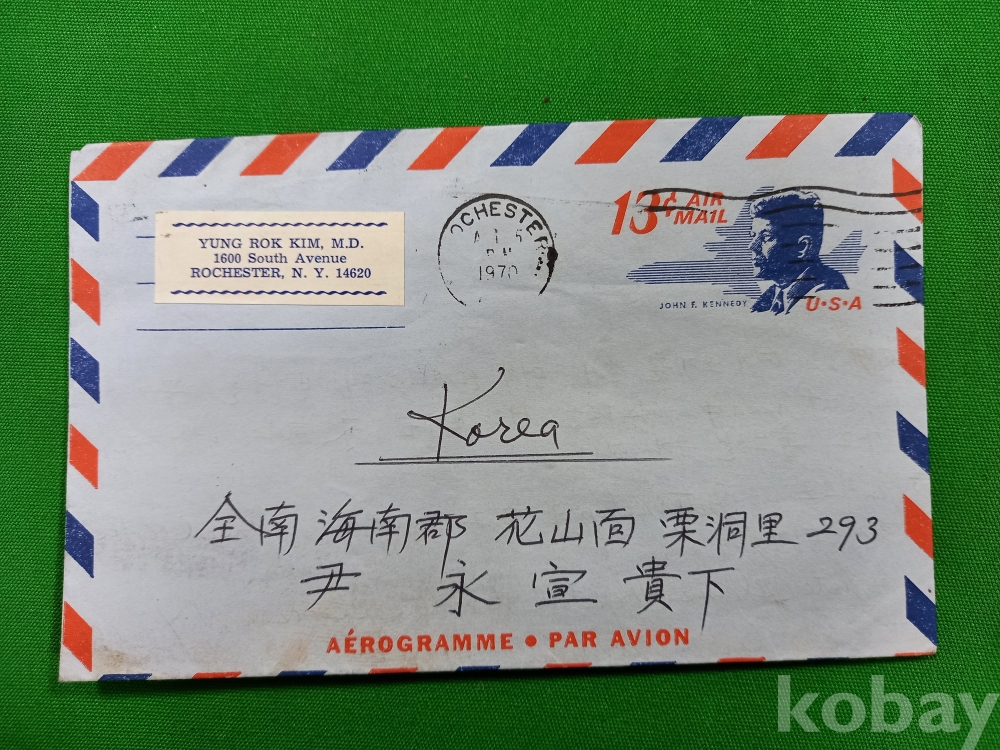 YUNG ROK KIM, M.D.
1600 South Avenue
ROCHESTER, N. Y. 14620
OCHESTER
PM
1970
13¢ AIR MAIL
JOHN F. KENNEDY
U·S·A
Korea
全南 海南郡 花山面 栗洞里 293
尹 永 宣 貴下
AÉROGRAMME • PAR AVION
kobay